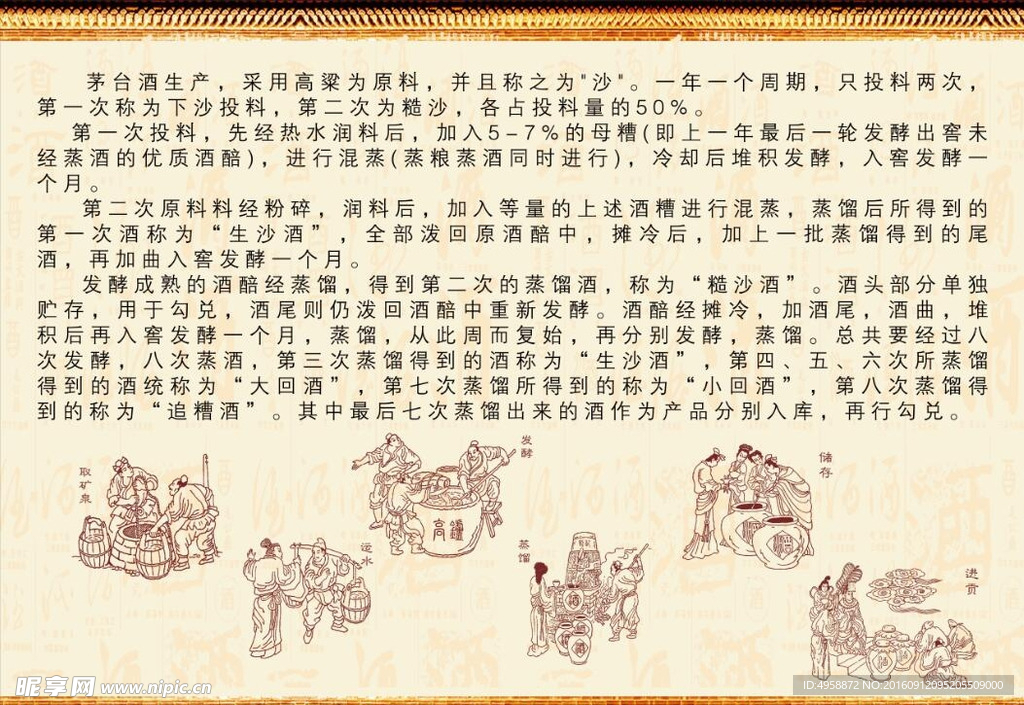 茅台酒生产，采用高粱为原料，并且称之为"沙"。一年一个周期，只投料两次，
第一次称为下沙投料，第二次为糙沙，各占投料量的50%。
第一次投料，先经热水润料后，加入5-7%的母糟(即上一年最后一轮发酵出窖未
经蒸酒的优质酒醅)，进行混蒸(蒸粮蒸酒同时进行)，冷却后堆积发酵，入窖发酵一
个月。
第二次原料料经粉碎，润料后，加入等量的上述酒糟进行混蒸，蒸馏后所得到的
第一次酒称为“生沙酒”，全部泼回原酒醅中，摊冷后，加上一批蒸馏得到的尾
酒，再加曲入窖发酵一个月。
发酵成熟的酒醅经蒸馏，得到第二次的蒸馏酒，称为“糙沙酒”。酒头部分单独
贮存，用于勾兑，酒尾则仍泼回酒醅中重新发酵。酒醅经摊冷，加酒尾，酒曲，堆
积后再入窖发酵一个月，蒸馏，从此周而复始，再分别发酵，蒸馏。总共要经过八
次发酵，八次蒸酒，第三次蒸馏得到的酒称为“生沙酒”，第四、五、六次所蒸馏
得到的酒统称为“大回酒”，第七次蒸馏所得到的称为“小回酒”，第八次蒸馏得
到的称为“追糟酒”。其中最后七次蒸馏出来的酒作为产品分别入库，再行勾兑。
取矿泉
运水
发酵
蒸馏
酒
储存
进贡
酒
昵享网 www.nipic.cn
ID:4958872 NO:20160912095205509000